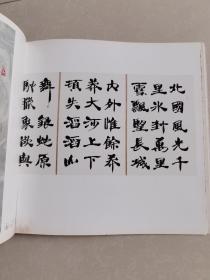 北國風光千
里冰封萬里
雪飄望長城
内外惟餘莽
莽大河上下
頓失滔滔山
舞銀蛇原
馳蠟象欲與